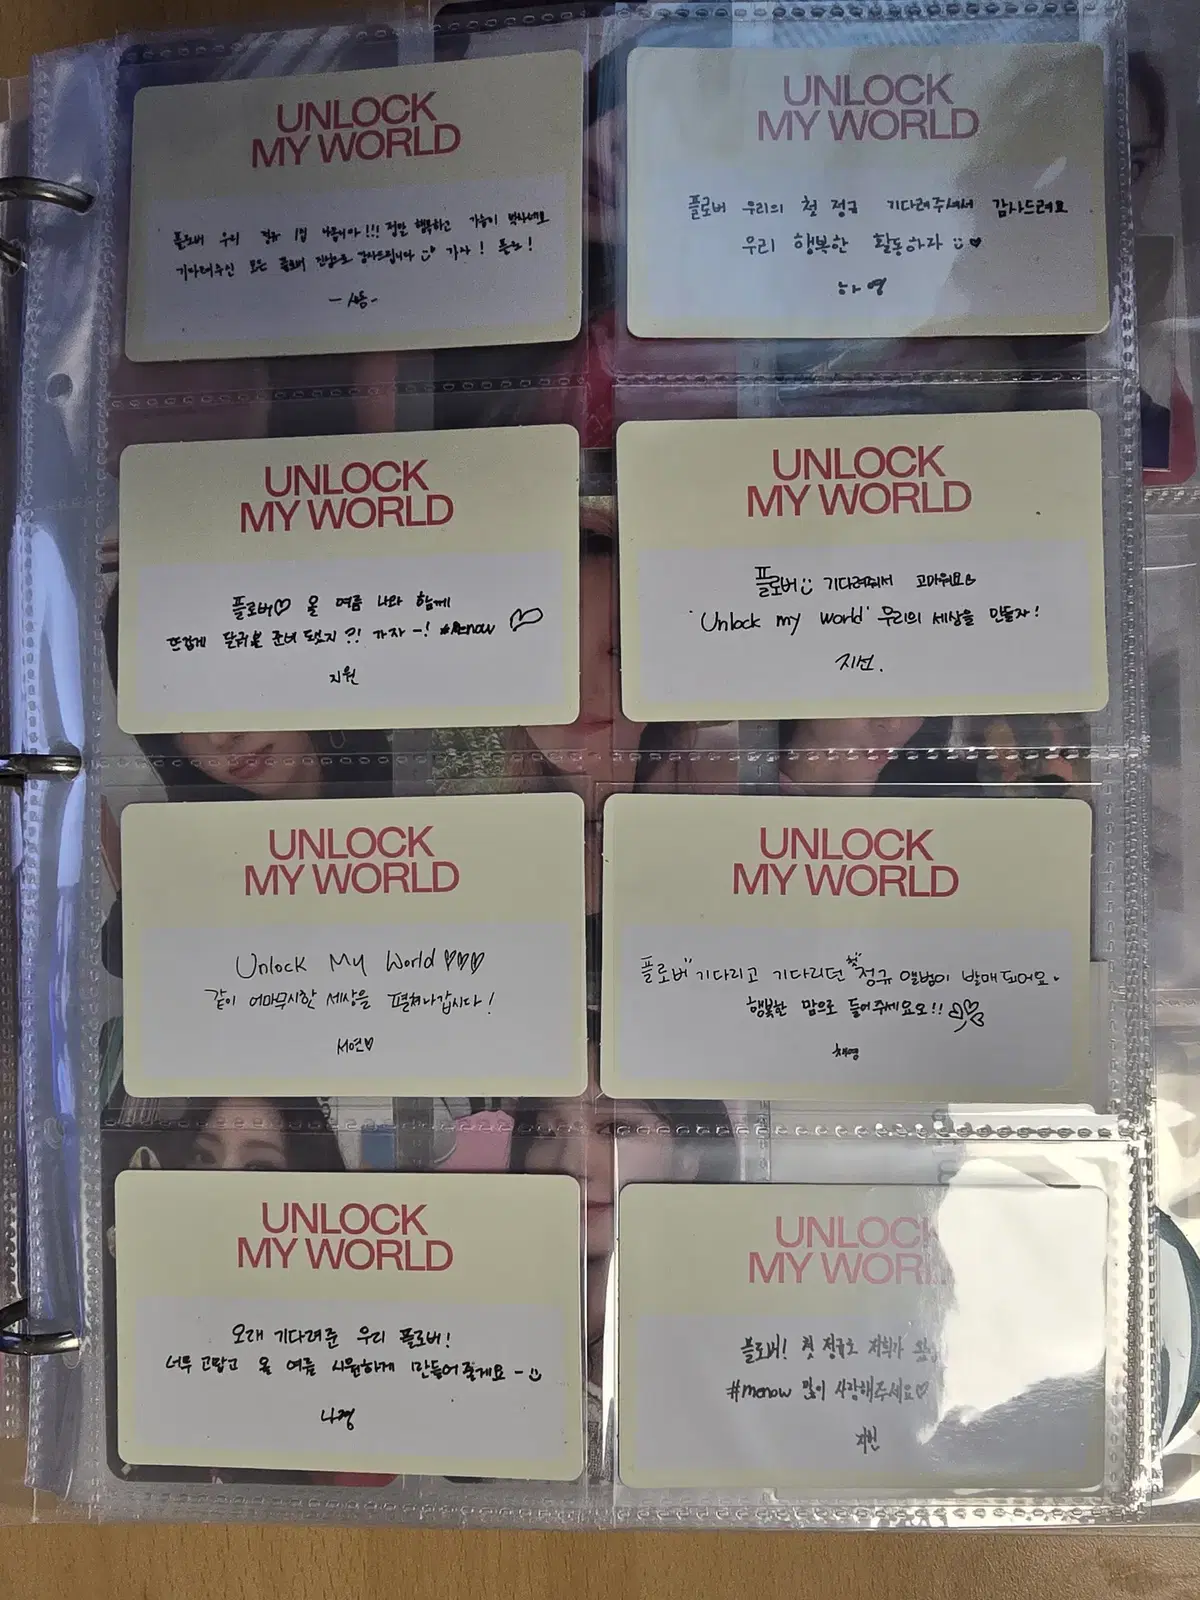 UNLOCK
MY WORLD
플로버 우리 정규 1집 나옵니다!!! 정말 행복하고 가슴이 벅차네요
기다려주신 모든 플로버 진심으로 감사드립니다 가자! 플로!
UNLOCK
MY WORLD
플로버 우리의 첫 정규 기다려주셔서 감사드려요
우리 행복한 활동하자
하영
UNLOCK
MY WORLD
플로버♡ 올 여름 나와 함께
뜨겁게 달려볼 준비 됐지?! 가자-! #menow ♡
지원
UNLOCK
MY WORLD
플로버 기다려줘서 고마워요
'Unlock my world' 우리의 세상을 만들자!
지선.
UNLOCK
MY WORLD
Unlock My World ♡♡♡
같이 어마무시한 세상을 펼쳐나갑시다!
서연♡
UNLOCK
MY WORLD
플로버" 기다리고 기다리던 "첫" 정규 앨범이 발매 되어요.
행복한 맘으로 들어주세요오!!
채영
UNLOCK
MY WORLD
오래 기다려준 우리 플로버!
너무 고맙고 올 여름 시원하게 만들어 줄게요 -
나경
UNLOCK
MY WOR
플로버! 첫 정규로 저희가
#menow 많이 사랑해주세요♡
지헌